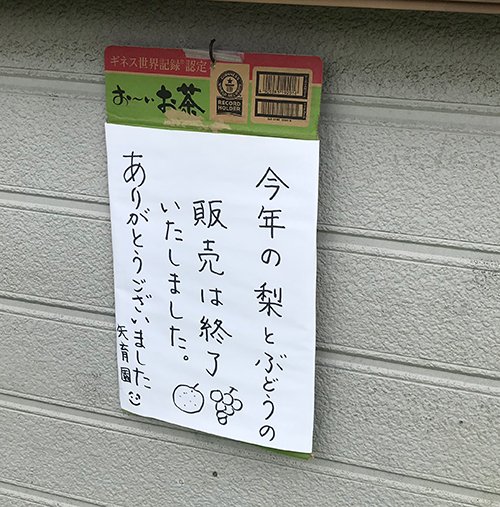 ギネス世界記録®認定
お〜いお茶
RECORD
HOLDER
今年の梨とぶどうの
販売は終了
いたしました。
ありがとうございました
矢育園